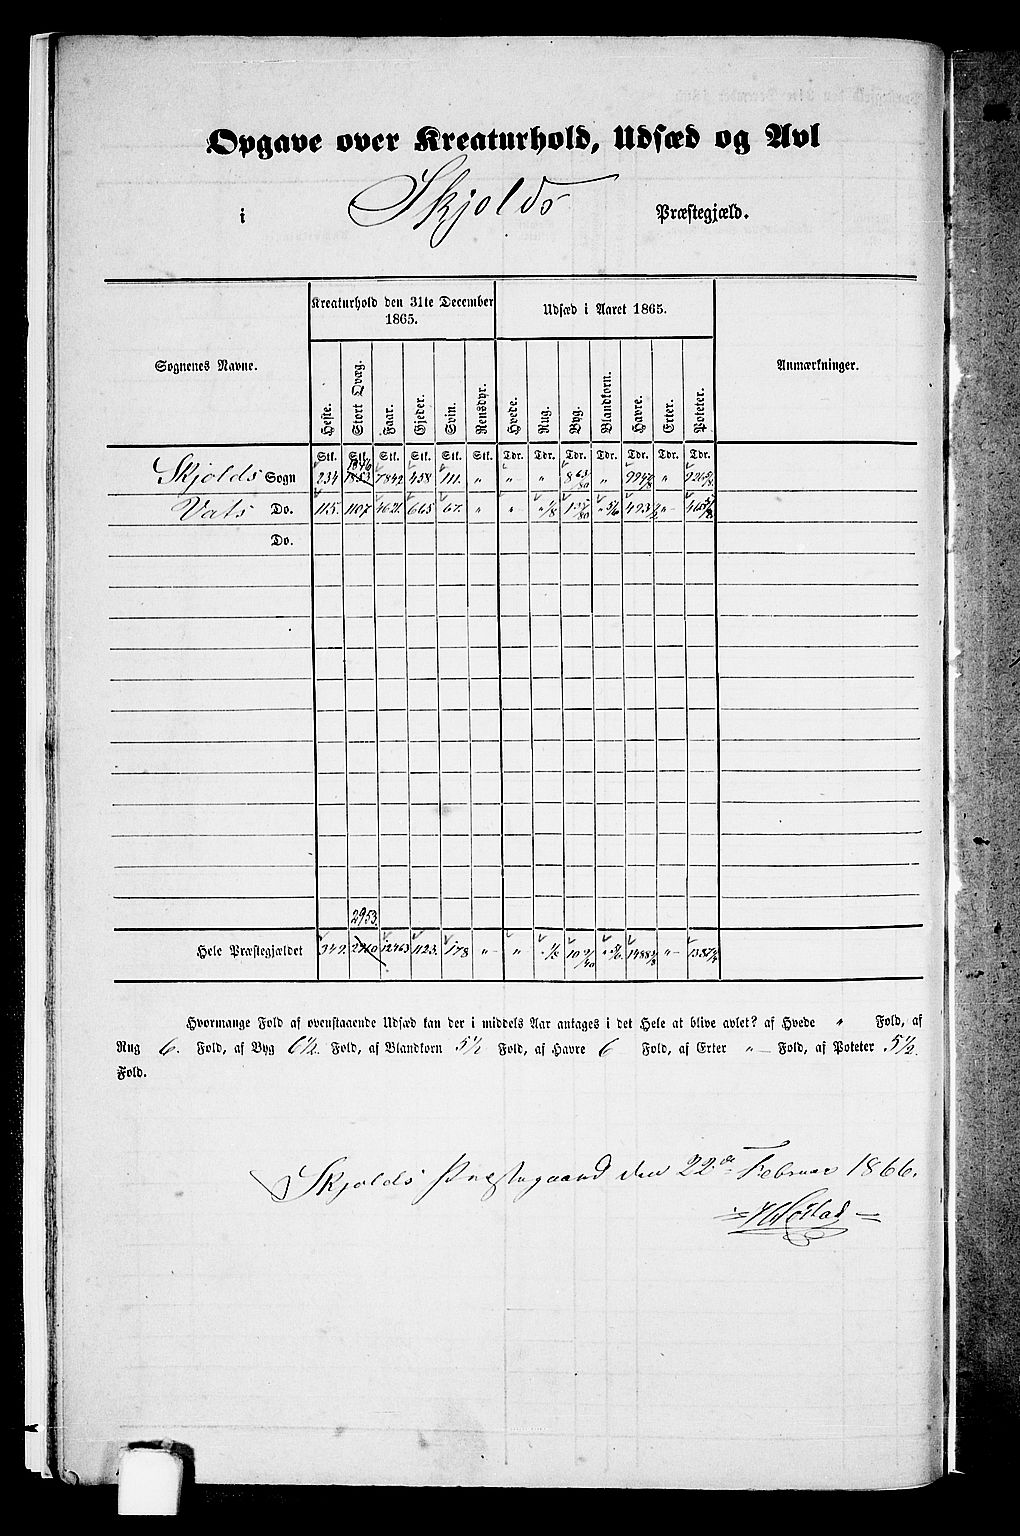 Opgave over Kreaturhold, Udsæd og Avl
i Skjolds Præstegjæld.
Sognenes Navne. Kreaturhold den 31te December 1865. Udsæd i Aaret 1865. Anmærkninger.
Heste. Stort Qvæg. Faar. Gjeder. Svin. Rensdyr. Hvede. Rug. Byg. Blandkorn. Havre. Erter. Poteter.
Stk. Stk. Stk. Stk. Stk. Stk. Tdr. Tdr. Tdr. Tdr. Tdr. Tdr. Tdr.
1846
Skjolds Sogn 234 1853 7842 458 111. " " " 8 63/80 " "
Vats Do. 115. 1107 4621. 665 67. " " " 1/8 " 5/6 "
Do.
2953.
Hele Præstegjældet 349. 12463 1123. 178 " " " 1/8 " 5/6 "
Hvormange Fold af ovenstaaende Udsæd kan der i middels Aar antages i det Hele at blive avlet? af Hvede " Fold, af
Rug 6. Fold, af Byg 6 1/2. Fold, af Blandkorn 5 1/2 Fold, af Havre 6 Fold, af Erter " Fold, af Poteter 5 1/2.
Fold.
Skjolds Præstegaard den 22de Februar 1866.